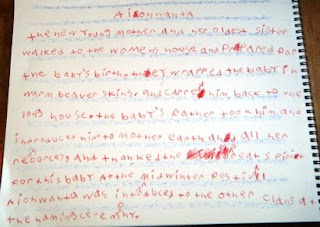 Aionwanta
the her young mother and her oldest sister
walked to the womens house and prepared for
the baby's birth. they wrapped the baby in
warm beaver skins, and carred him back to the
long house. the baby's father took him and
introduced him to mother earth and all her
resources and thanked the great spirit
for this baby. At the midwinter festival
Aiohwanta was introduced to the other clans at
the naming ceremony.